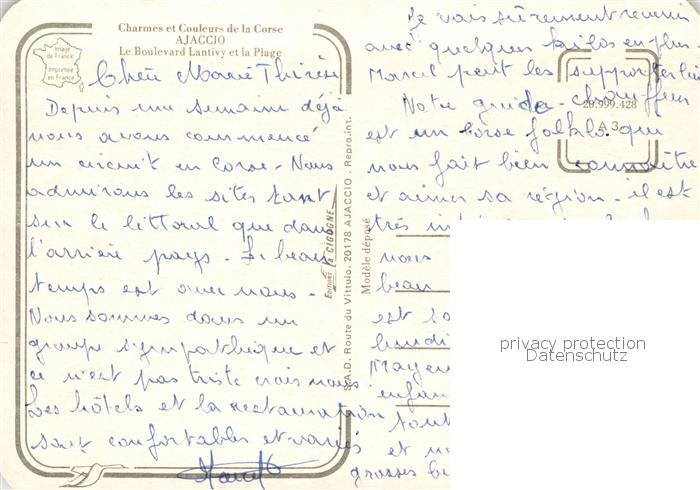 Charmes et Couleurs de la Corse
AJACCIO
Le Boulevard Lantivy et la Plage
Image
de France
Imprimée
en France
Chère Marie Thérèse
Depuis une semaine déjà
nous avons commencé
un circuit en Corse - Nous
admirons les sites tant
sur le littoral que dans
l'arrière pays. Le beau
temps est avec nous -
Nous sommes dans un
groupe sympathique et
ce n'est pas triste crois moi
Les hôtels et la restauration
sont confortables et variés
Editions la CIGOGNE
S.A.D. Route du Vittulo, 20178 AJACCIO - Repro. int.
Modèle déposé
Je vais sûrement revenir
avec quelques kilos en plus
Marcel peut les supporter lui
Notre guide-chauffeur
20.999.428
A 3
est un corse folklo. qui
nous fait bien connaître
et aimer sa région - il est
très
nous
beau
est
lundi
Mayen
enfan
tout
et
grosses
privacy protection
Datenschutz